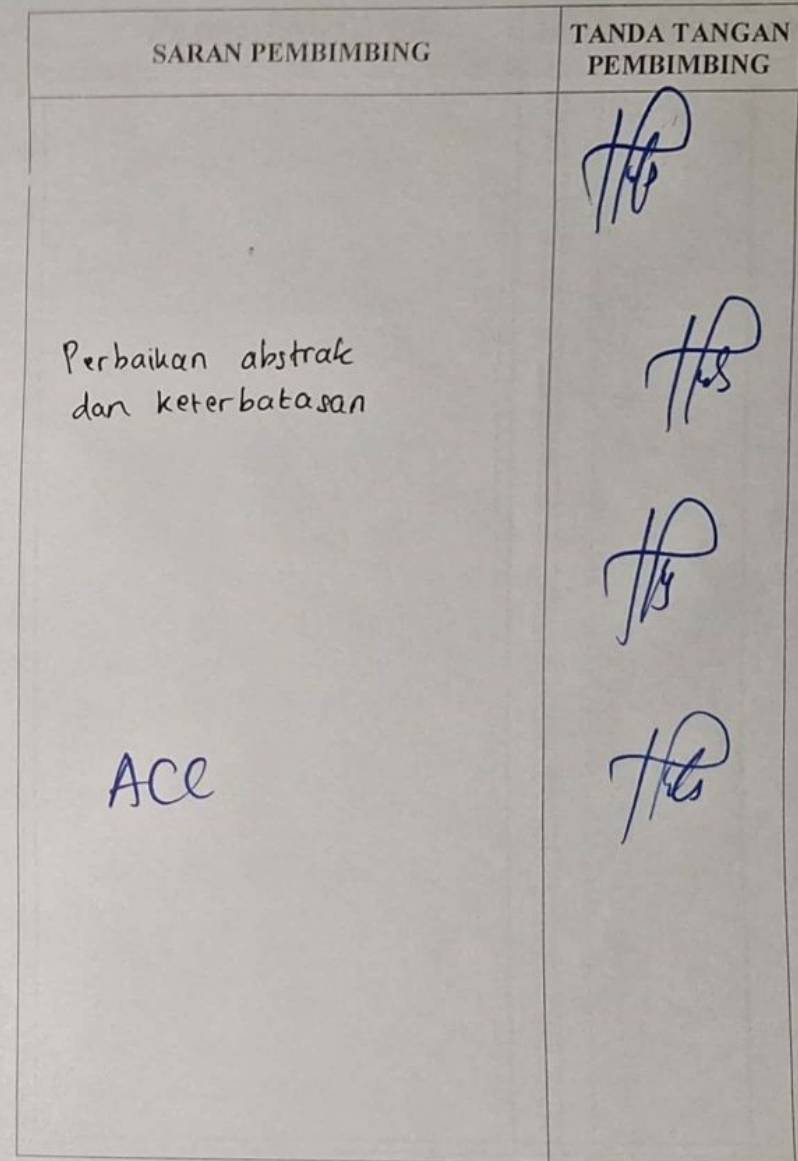 SARAN PEMBIMBING
TANDA TANGAN
PEMBIMBING
Perbaikan abstrak
dan keterbatasan
ACC